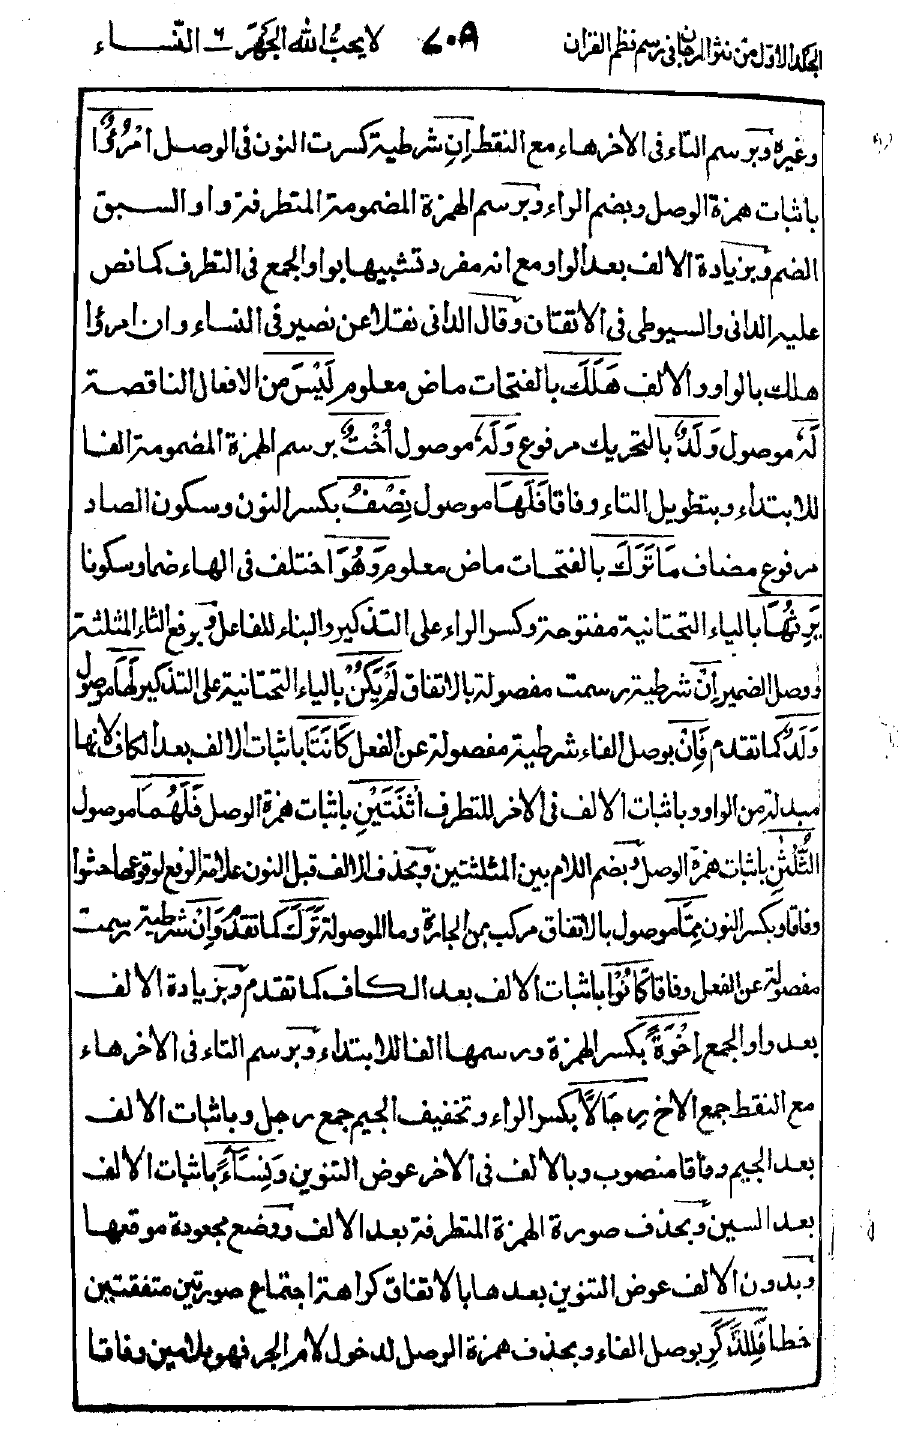 الجلد الاول من نثر المرجان فى رسم نظم القران ٧٠٨ لا يحب الله الجهر ٦ النساء
وغيره وبرسم التاء فى الاخر هاء مع النقط اِنِ شرطية كسرت النون فى الوصل امْرُؤٌا
باثبات همزة الوصل وبضم الراء وبرسم الهمزة المضمومة المتطرفة واو السبق
الضم وبزيادة الالف بعد الواو مع انه مفرد تشبيها بواو الجمع فى التطرف كما نص
عليه الدانى والسيوطى فى الاتقان وقال الدانى نقلا عن نصير فى النساء وان امرؤا
هلك بالواو والالف هَلَكَ بالفتحات ماض معلوم لَيْسَ من الافعال الناقصة
لَهٗ موصول وَلَدٌ بالتحريك مرفوع وَلَهٗ موصول اُخْتٌ برسم الهمزة المضمومة الفا
للابتداء وبتطويل التاء وفاقا فَلَهَا موصول نِصْفُ بكسر النون وسكون الصاد
مرفوع مضاف مَا تَرَكَ بالفتحات ماض معلوم وَهُوَ اختلف فى الهاء ضما وسكونا
يَرِثُهَا بالياء التحتانية مفتوحة وكسر الراء على التذكير والبناء للفاعل وبرفع الثاء المثلثة
ووصل الضمير اِنْ شرطية رسمت مفصولة بالاتفاق لَمْ يَكُنْ بالياء التحتانية على التذكير لَهَا موصول
وَلَدٌ كما تقدم فَاِنْ بوصل الفاء شرطية مفصولة عن الفعل كَانَتَا باثبات الالف بعد الكاف لانها
مبدلة من الواو وباثبات الالف فى الاخر للتطرف اثْنَتَيْنِ باثبات همزة الوصل فَلَهُمَا موصول
الثُّلُثٰنِ باثبات همزة الوصل وبضم اللام بين المثلثتين وبحذف الالف قبل النون علامة الرفع لوقوعها حشوا
وفاقا وبكسر النون مِمَّا موصول بالاتفاق مركب من الجارة وما الموصولة تَرَكَ كما تقدم وَاِنْ شرطية رسمت
مفصولة عن الفعل وفاقا كَانُوْا باثبات الالف بعد الكاف كما تقدم وبزيادة الالف
بعد واو الجمع اِخْوَةً بكسر الهمزة ورسمها الفا للابتداء وبرسم التاء فى الاخر هاء
مع النقط جمع الاخ رِجَالًا بكسر الراء وتخفيف الجيم جمع رجل وباثبات الالف
بعد الجيم وفاقا منصوب وبالالف فى الاخر عوض التنوين وَنِسَآءً باثبات الالف
بعد السين وبحذف صورة الهمزة المتطرفة بعد الالف ووضع مجعودة موقعها
وبدون الالف عوض التنوين بعدها بالاتفاق كراهة اجتماع صورتين متفقتين
خطا فَلِلذَّكَرِ بوصل الفاء وبحذف همزة الوصل لدخول لام الجر فهو بلامين وفاقا